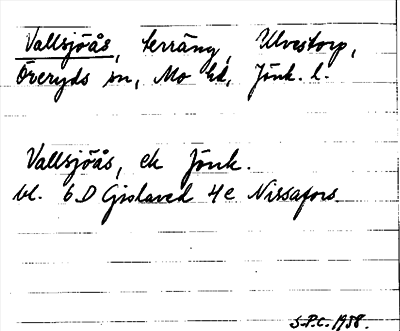 Vallsjöås, terräng, Ulvestorp,
Öreryds sn, Mo hd, Jönk. l.
Vallsjöås, ek Jönk.
bl. 6 D Gislaved 4e Nissafors
S.P.C. 1958.